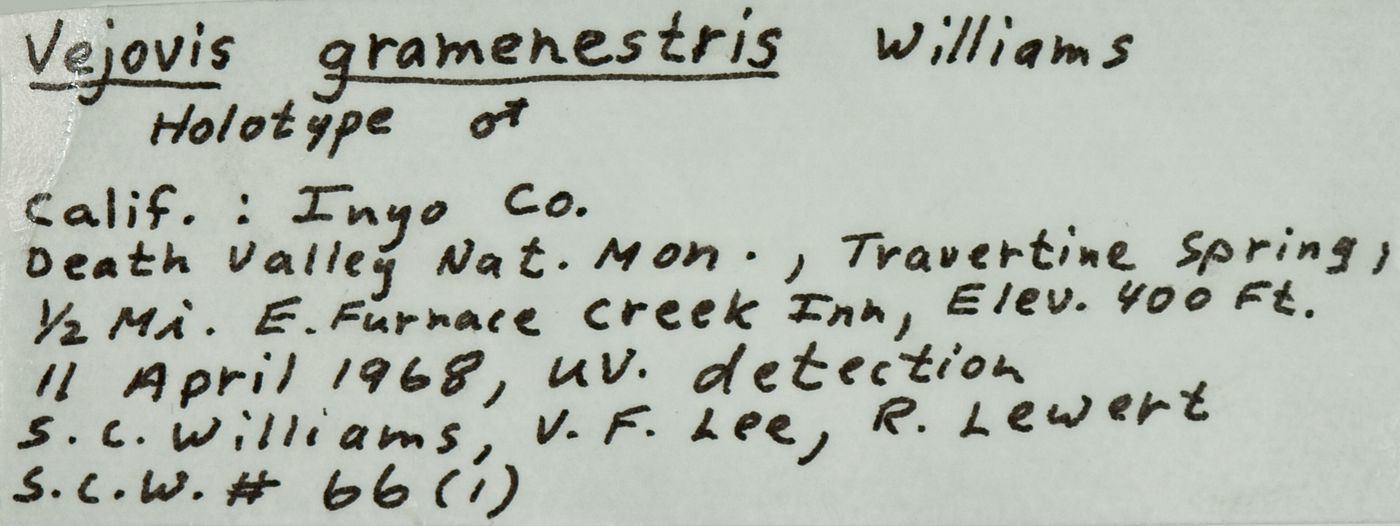 Vejovis gramenestris Williams
Holotype ♂
Calif. : Inyo Co.
Death Valley Nat. Mon. , Travertine Spring,
1/2 Mi. E. Furnace Creek Inn, Elev. 400 Ft.
11 April 1968, UV. detection
S. C. Williams, V. F. Lee, R. Lewert
S.C.W. # 66(1)